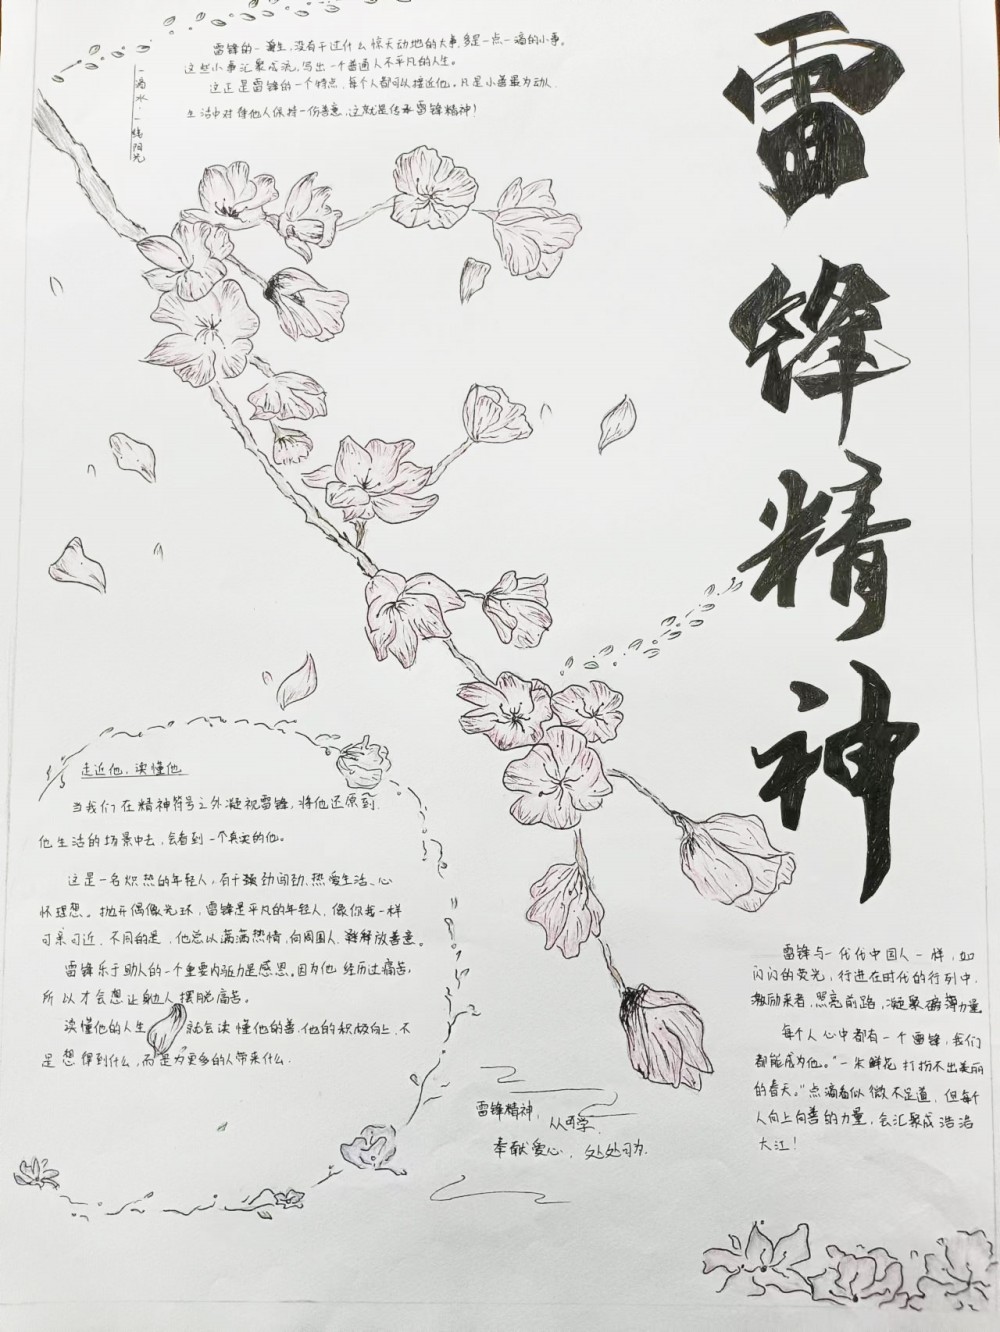 雷锋精神
一滴水·一缕阳光
雷锋的一生,没有干过什么惊天动地的大事,多是一点一滴的小事。
这些小事汇聚成流,写出一个普通人不平凡的人生。
这正是雷锋的一个特点,每个人都可以接近他。凡是小善最为动人,
生活中对待他人保持一份善意,这就是传承雷锋精神!
走近他,读懂他
当我们在精神符号之外凝视雷锋,将他还原到
他生活的场景中去,会看到一个真实的他。
这是一名炽热的年轻人,有干强劲闯劲,热爱生活、心
怀理想。抛开偶像光环,雷锋是平凡的年轻人,像你我一样
可亲可近,不同的是,他总以满满热情,向周围人释放善意。
雷锋乐于助人的一个重要内驱力是感恩。因为他经历过痛苦,
所以才会想让他人摆脱痛苦。
读懂他的人生 就会读懂他的善,他的积极向上,不
是想得到什么,而是为更多的人带来什么.
雷锋精神,
从可学,
奉献爱心,处处可为.
雷锋与一代代中国人一样,如
闪闪的荧光,行进在时代的行列中,
激励来者,照亮前路,凝聚磅礴力量.
每个人心中都有一个雷锋,我们
都能成为他。"一朵鲜花打扮不出美丽
的春天。"点滴看似微不足道,但每个
人向上向善的力量,会汇聚成浩浩
大江!